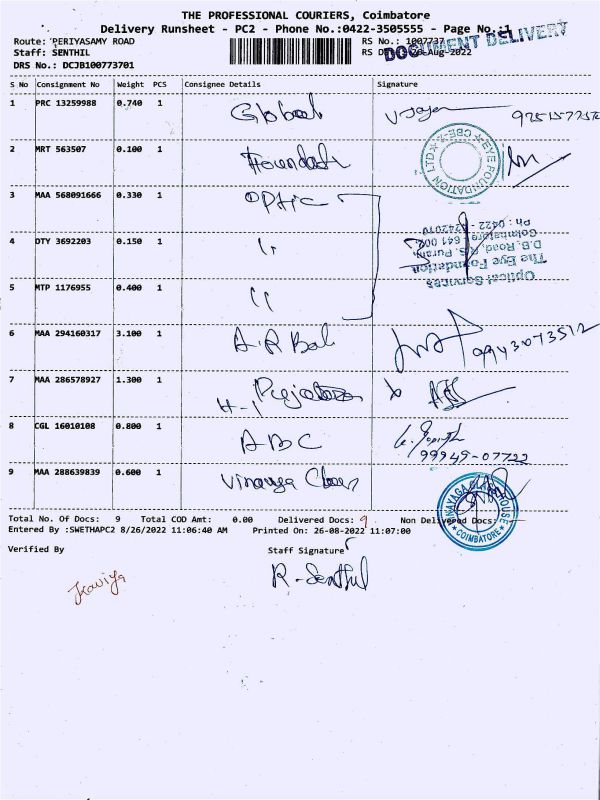 THE PROFESSIONAL COURIERS, Coimbatore
Delivery Runsheet - PC2 - Phone No.:0422-3505555 - Page No.:1
Route: PERIYASAMY ROAD
RS No.: 1007737
DOCUMENT DELIVERY
Staff: SENTHIL
26-Aug-2022
DRS No.: DCJB100773701
S No Consignment No Weight PCS Consignee Details Signature
1 PRC 13259988 0.740 1 Global
2 MRT 563507 0.100 1
EYE FOUNDATION LTD CBE-2
3 MAA 568091666 0.330 1 Optic
4 DTY 3692203 0.150 1 "
5 MTP 1176955 0.400 1 "
Optical Services
The Eye Foundation
D.B. Road, R.S. Puram,
Coimbatore - 641 002.
6 MAA 294160317 3.100 1 A.R Bal 9943073512
7 MAA 286578927 1.300 1
8 CGL 16010108 0.800 1 ABC 99949-07722
9 MAA 288639839 0.600 1 Vinayaga
COIMBATORE
Total No. Of Docs: 9 Total COD Amt: 0.00 Delivered Docs: 9 Non Delivered Docs:
Entered By :SWETHAPC2 8/26/2022 11:06:40 AM Printed On: 26-08-2022 11:07:00
Verified By Staff Signature
Kaviya R. Senthil